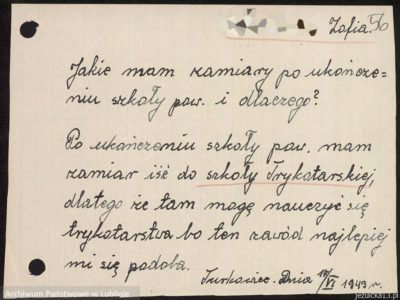 Zofia. 56
Jakie mam zamiary po ukończe-
niu szkoły pow. i dlaczego?
Po ukończeniu szkoły pow. mam
zamiar iść do szkoły Trykotarskiej,
dlatego że tam mogę nauczyć się
trykotarstwa bo ten zawód najlepiej
mi się podoba.
Turkowiec. Dnia VI 1949 r.
Archiwum Państwowe w Lublinie
jezuicka13.pl